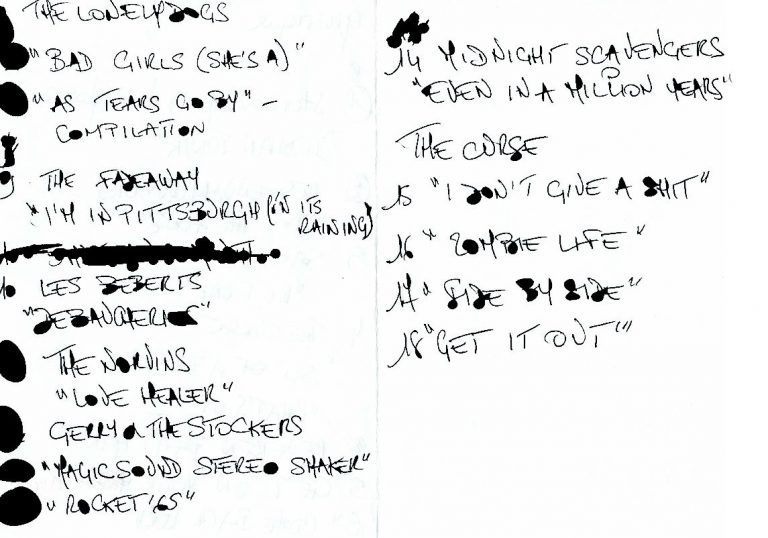 THE LONELYDOGS
"BAD GIRLS (SHE'S A)"
"AS TEARS GO BY" -
COMPILATION
9 THE FADEAWAY
"I'M IN PITTSBURGH (ON ITS
RAINING)
LES BEBERTS
"DEBAUCHERIES"
THE NORVINS
"LOVE HEALER"
GERRY & THE STOCKERS
"MAGIC SOUND STEREO SHAKER"
"ROCKET '65"
14 MIDNIGHT SCAVENGERS
"EVEN IN A MILLION YEARS"
THE CURSE
15 "I DON'T GIVE A SHIT"
16 "ZOMBIE LIFE"
17 "SIDE BY SIDE"
18 "GET IT OUT"